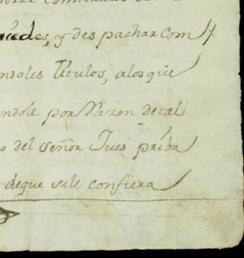 uedes, y despachar com
ndoles Titulos, alos que
endole por Razon de tal
o del señor Jues priba
deque se le confiera